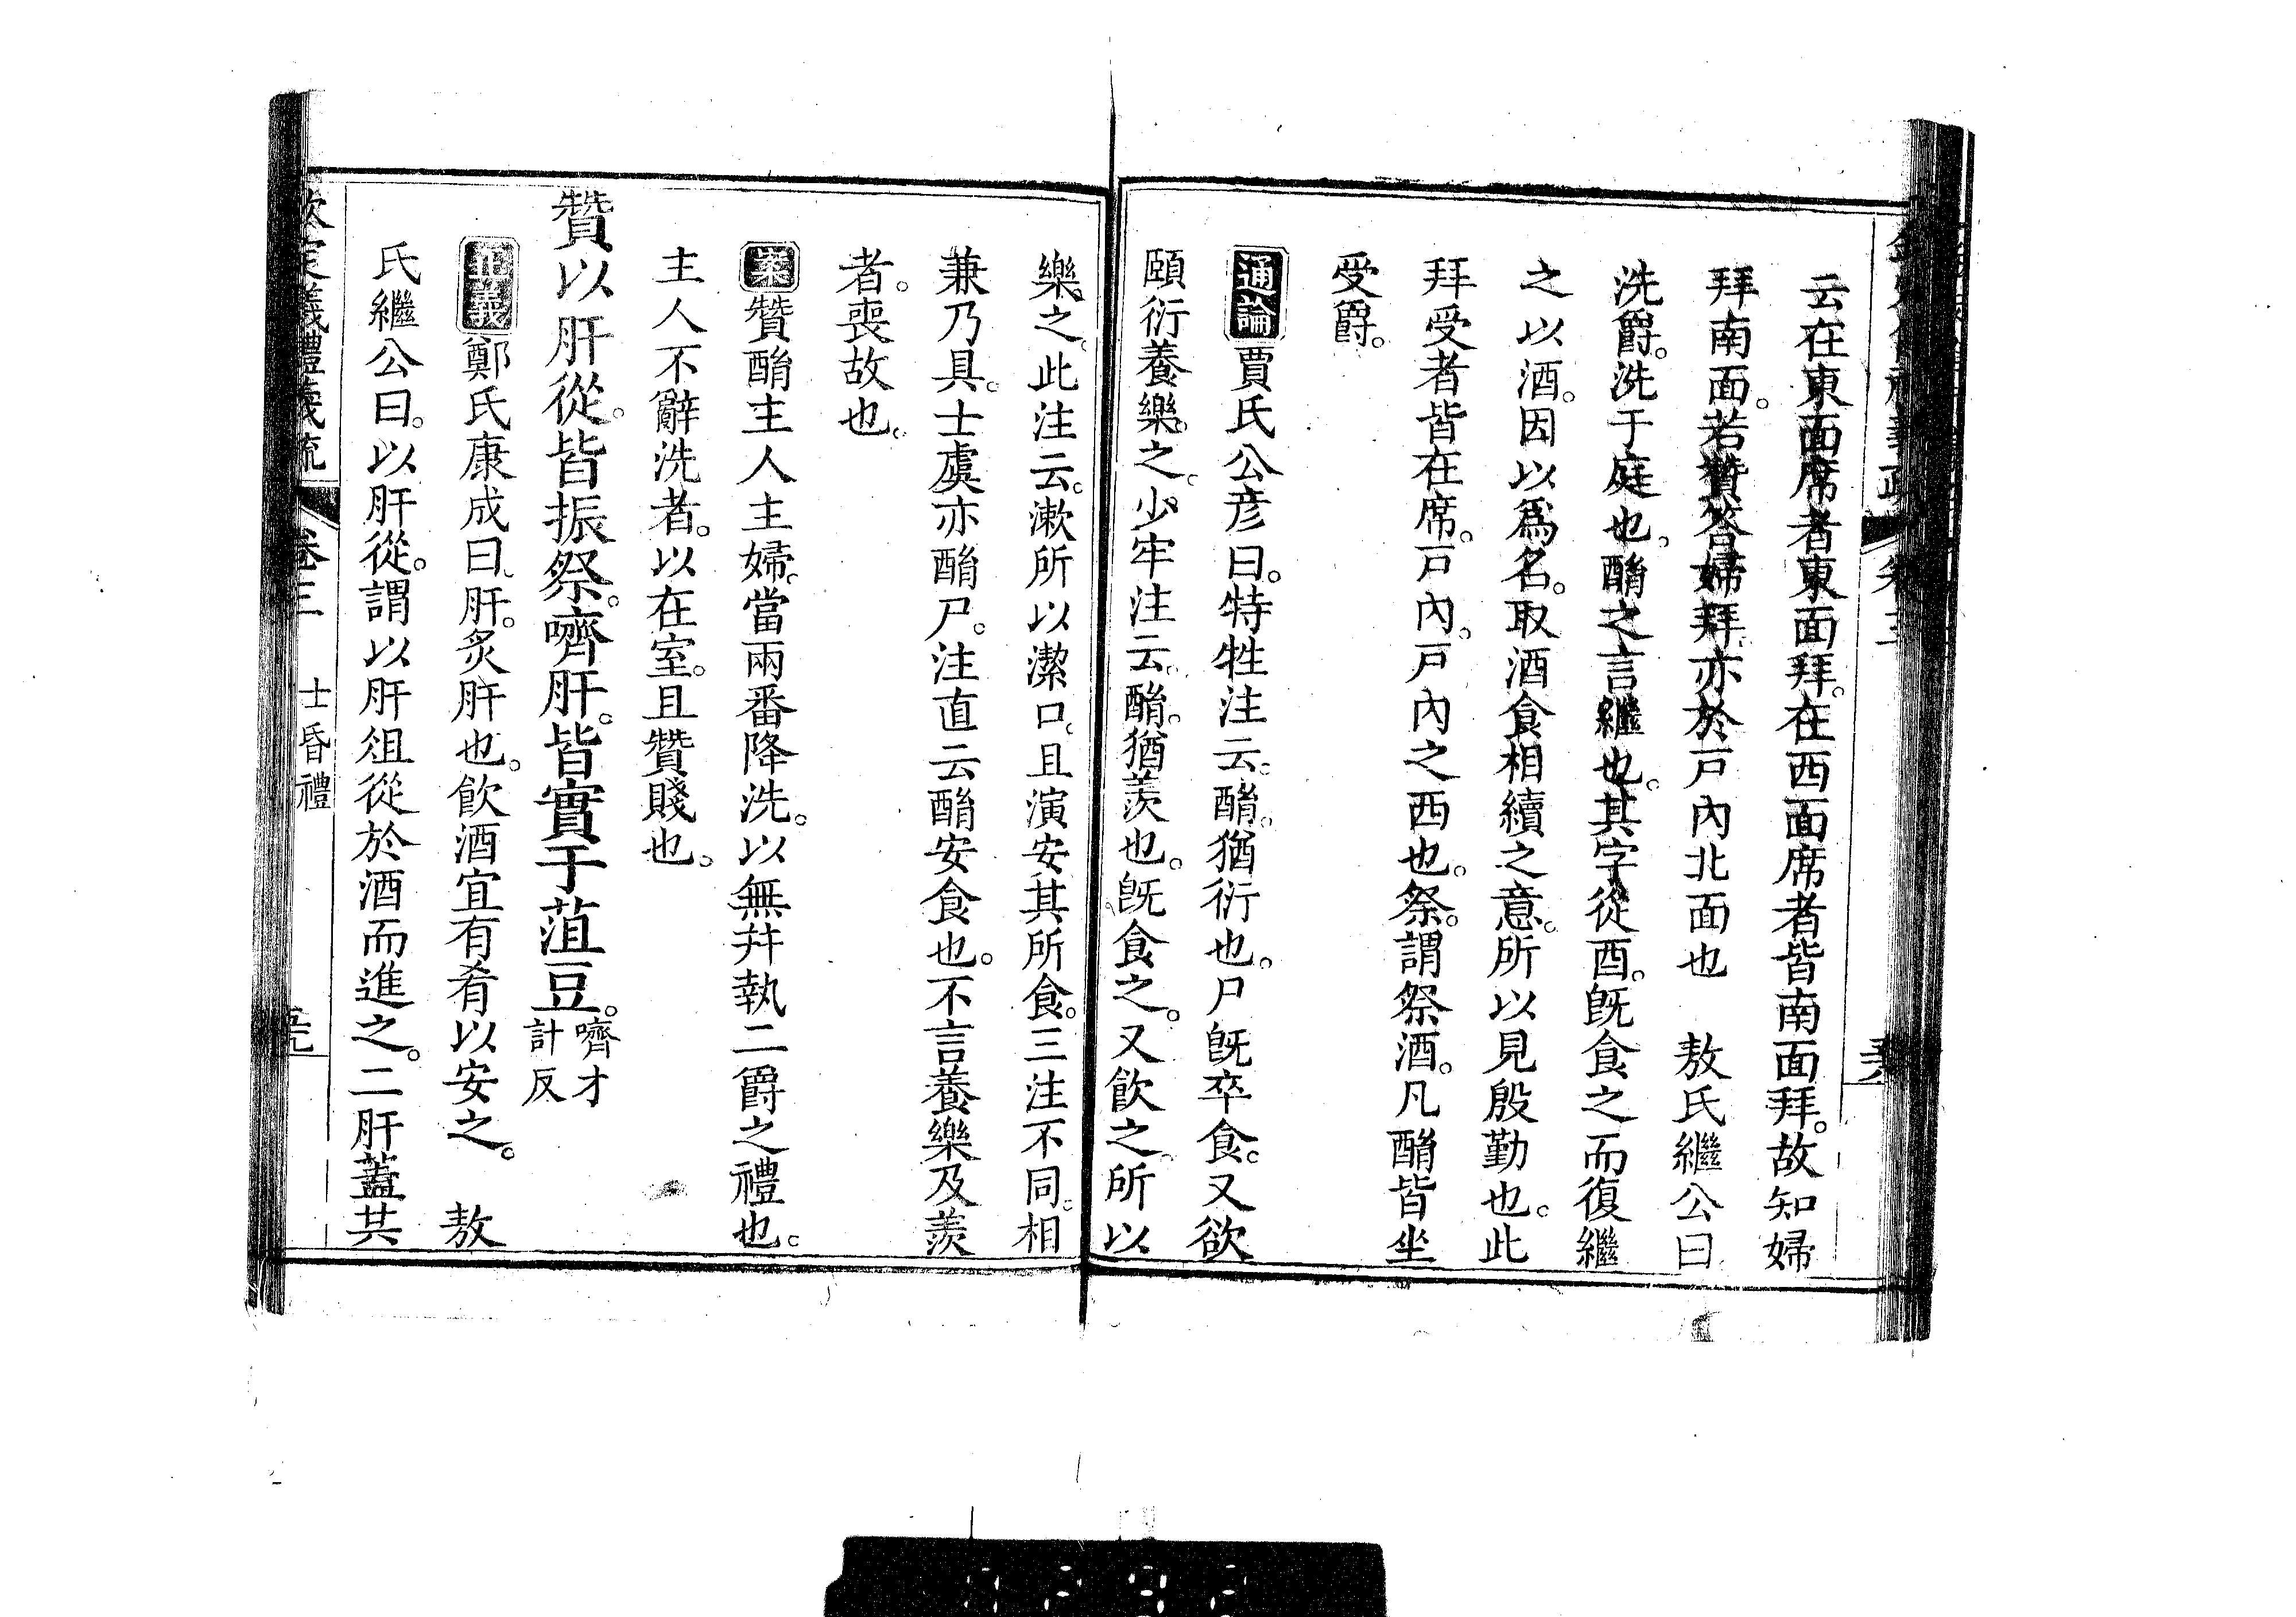 云在東面席者東面拜。在西面席者皆南面拜。故知婦
拜南面。若贊答婦拜。亦於戸內北面也　敖氏繼公曰
洗爵。洗于庭也。酳之言繼也。其字從酉。旣食之而復繼
之以酒。因以爲名。取酒食相續之意。所以見殷勤也。此
拜受者皆在席。戸內。戸內之西也。祭。謂祭酒。凡酳皆坐
受爵。
通論賈氏公彦曰。特牲注云。酳。猶衍也。尸旣卒食。又欲
頤衍養樂之。少牢注云。酳。猶羨也。旣食之。又飮之。所以
樂之。此注云。漱所以潔口。且演安其所食。三注不同。相
兼乃具。士虞亦酳尸。注直云酳安食也。不言養樂及羨
者。喪故也。
案贊酳主人主婦。當兩番降洗。以無幷執二爵之禮也。
主人不辭洗者。以在室。且贊賤也。
贊以肝從。皆振祭。嚌肝。皆實于菹豆。嚌才計反
正義鄭氏康成曰。肝。炙肝也。飮酒宜有肴以安之。　敖
氏繼公曰。以肝從。謂以肝俎從於酒而進之。二肝蓋共
欽定義禮義疏　卷三　士昏禮